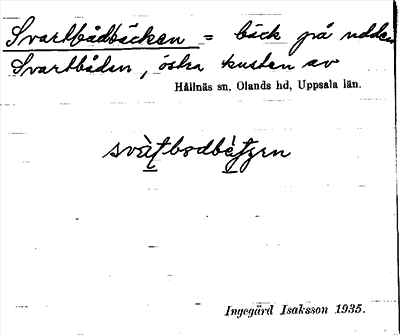 Svartbådbäcken = bäck på udden
Svartbåden, östra kusten av
Hållnäs sn, Olands hd, Uppsala län.
Ingegärd Isaksson 1935.